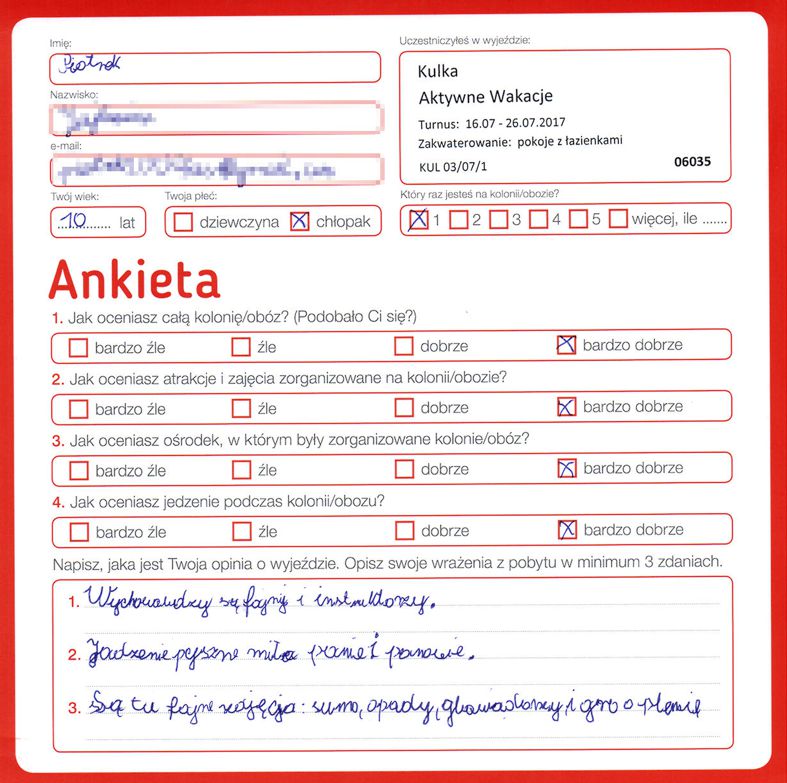 Imię:
Piotrek
Nazwisko:
e-mail:
Twój wiek:
10 lat
Twoja płeć:
dziewczyna chłopak
Uczestniczyłeś w wyjeździe:
Kulka
Aktywne Wakacje
Turnus: 16.07 - 26.07.2017
Zakwaterowanie: pokoje z łazienkami
KUL 03/07/1 06035
Który raz jesteś na kolonii/obozie?
1 2 3 4 5 więcej, ile .......
Ankieta
1. Jak oceniasz całą kolonię/obóz? (Podobało Ci się?)
bardzo źle źle dobrze bardzo dobrze
2. Jak oceniasz atrakcje i zajęcia zorganizowane na kolonii/obozie?
bardzo źle źle dobrze bardzo dobrze
3. Jak oceniasz ośrodek, w którym były zorganizowane kolonie/obóz?
bardzo źle źle dobrze bardzo dobrze
4. Jak oceniasz jedzenie podczas kolonii/obozu?
bardzo źle źle dobrze bardzo dobrze
Napisz, jaka jest Twoja opinia o wyjeździe. Opisz swoje wrażenia z pobytu w minimum 3 zdaniach.
1. Wychowawdzy są fajnij i instruktorzy.
2. Jadzenie pyszne miłe panie i panowie.
3. Są tu fajne zajęcja: sumo, i gro o plemię